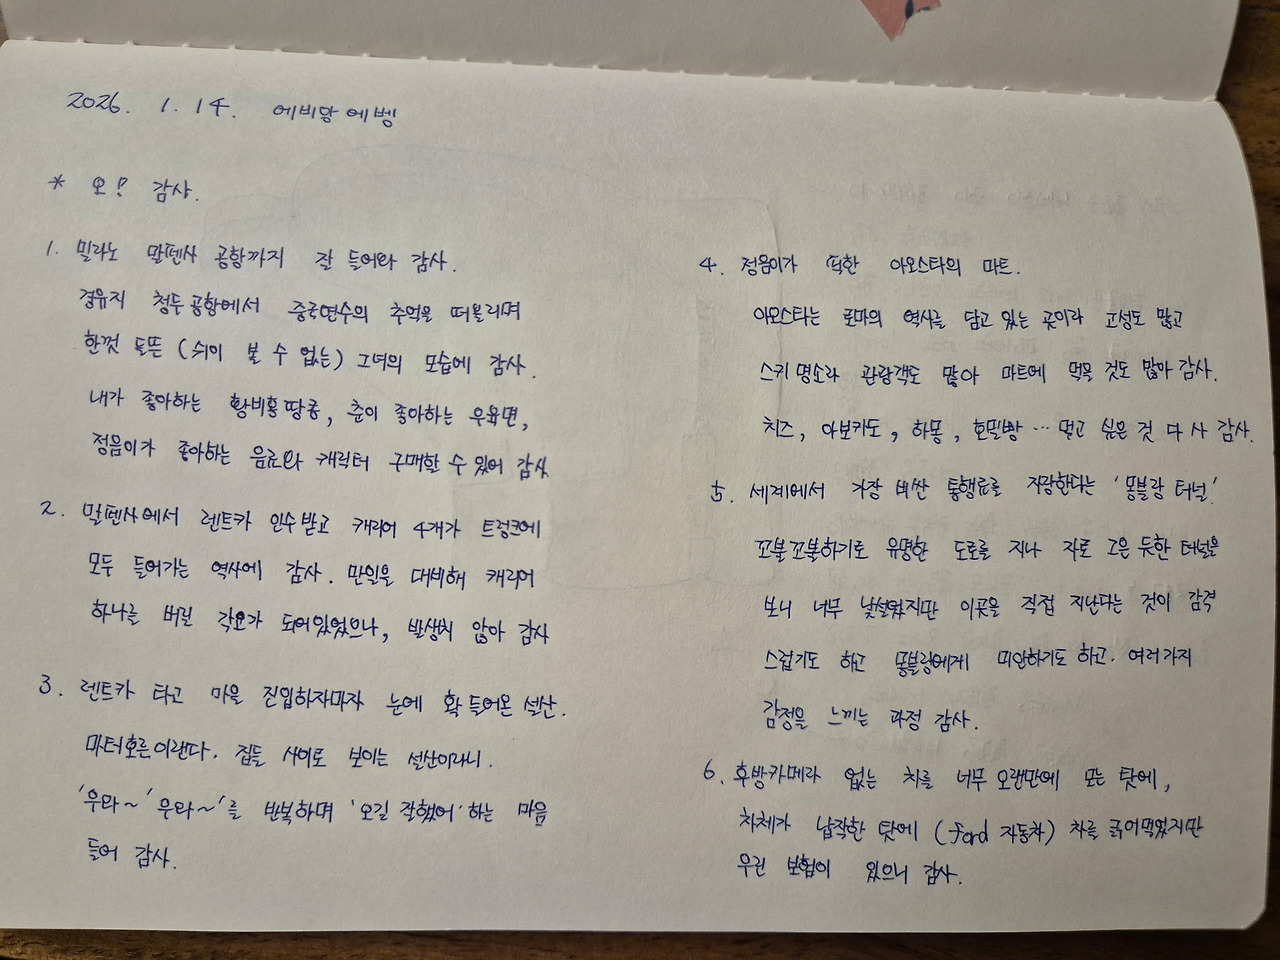 2026. 1. 14. 에비앙에벵
* 오! 감사.
1. 밀라노 말펜사 공항까지 잘 들어와 감사.
경유지 청두공항에서 중국연수의 추억을 떠올리며
한껏 들뜬 (쉬이 볼 수 없는) 그녀의 모습에 감사.
내가 좋아하는 황비홍땅콩, 춘이 좋아하는 우육면,
정음이가 좋아하는 음료와 캐릭터 구매할 수 있어 감사
2. 말펜사에서 렌트카 인수받고 캐리어 4개가 트렁크에
모두 들어가는 역사에 감사. 만일을 대비해 캐리어
하나를 버릴 각오가 되어있었으나, 발생치 않아 감사
3. 렌트카 타고 마을 진입하자마자 눈에 확 들어온 설산.
마터호른이랜다. 집들 사이로 보이는 설산이라니.
'우와~' 우와~'를 반복하며 '오길 잘했어' 하는 마음
들어 감사.
4. 정음이가 픽한 아오스타의 마트.
아오스타는 로마의 역사를 담고 있는 곳이라 고성도 많고
스키 명소라 관광객도 많아 마트에 먹을 것도 많아 감사.
치즈, 아보카도, 하몽, 호밀빵 … 먹고 싶은 것 다 사 감사.
5. 세계에서 가장 비싼 통행료를 자랑한다는 '몽블랑 터널'.
꼬불꼬불하기로 유명한 도로를 지나 자로 그은 듯한 터널을
보니 너무 낯설었지만 이곳을 직접 지난다는 것이 감격
스럽기도 하고 몽블랑에게 미안하기도 하고. 여러가지
감정을 느끼는 과정 감사.
6. 후방카메라 없는 차를 너무 오랜만에 모는 탓에,
차체가 납작한 탓에 (ford 자동차) 차를 긁어먹었지만
우린 보험이 있으니 감사.